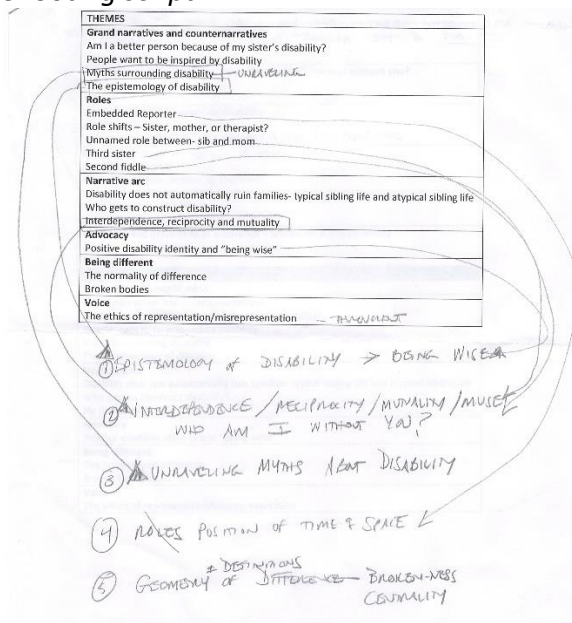 THEMES
Grand narratives and counternarratives
Am I a better person because of my sister's disability?
People want to be inspired by disability
Myths surrounding disability — UNRAVELING
The epistemology of disability
Roles
Embedded Reporter
Role shifts – Sister, mother, or therapist?
Unnamed role between- sib and mom
Third sister
Second fiddle
Narrative arc
Disability does not automatically ruin families- typical sibling life and atypical sibling life
Who gets to construct disability?
Interdependence, reciprocity and mutuality
Advocacy
Positive disability identity and "being wise"
Being different
The normality of difference
Broken bodies
Voice
The ethics of representation/misrepresentation — THROUGHOUT
① EPISTEMOLOGY of DISABILITY > BEING WISE
② INTERDEPENDENCE / RECIPROCITY / MUTUALITY / MUSE
WHO AM I WITHOUT YOU?
③ UNRAVELING MYTHS ABOUT DISABILITY
④ ROLES POSITION OF TIME & SPACE
* DEFINITIONS
⑤ GEOMETRY OF DIFFERENCE — BROKEN-NESS
CENTRALITY